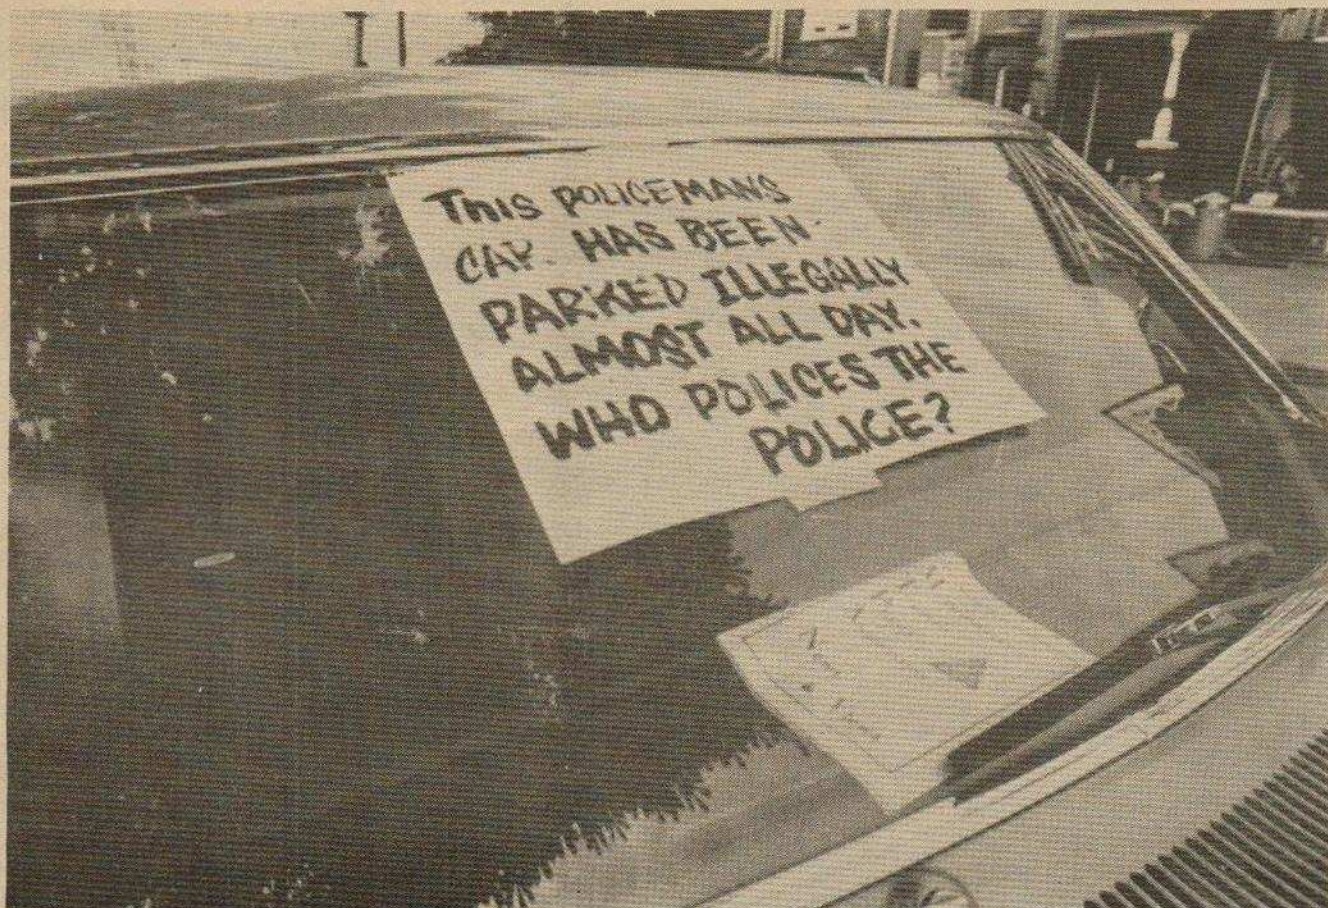 THIS POLICEMANS
CAR. HAS BEEN
PARKED ILLEGALLY
ALMOST ALL DAY.
WHO POLICES THE
POLICE?